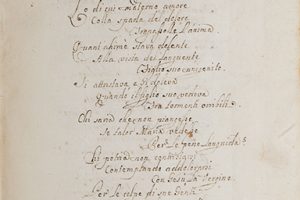 Le di cui materno amore
Colla spada del dolore
Trapassolle l'anima
Quant' ahimè stava dolente
Alla vista del languente
Figlio suo unigenito.
Si attristava, e si doleva
Quando il figlio suo vedeva
Tra tormenti orribili.
Chi saria che non piangesse
Se talor Maria vedesse
Per le pene languida?
Chi potrà non contristarsi
Contemplando addolorarsi
Con Gesù la Vergine
Per le colpe di sue Genti